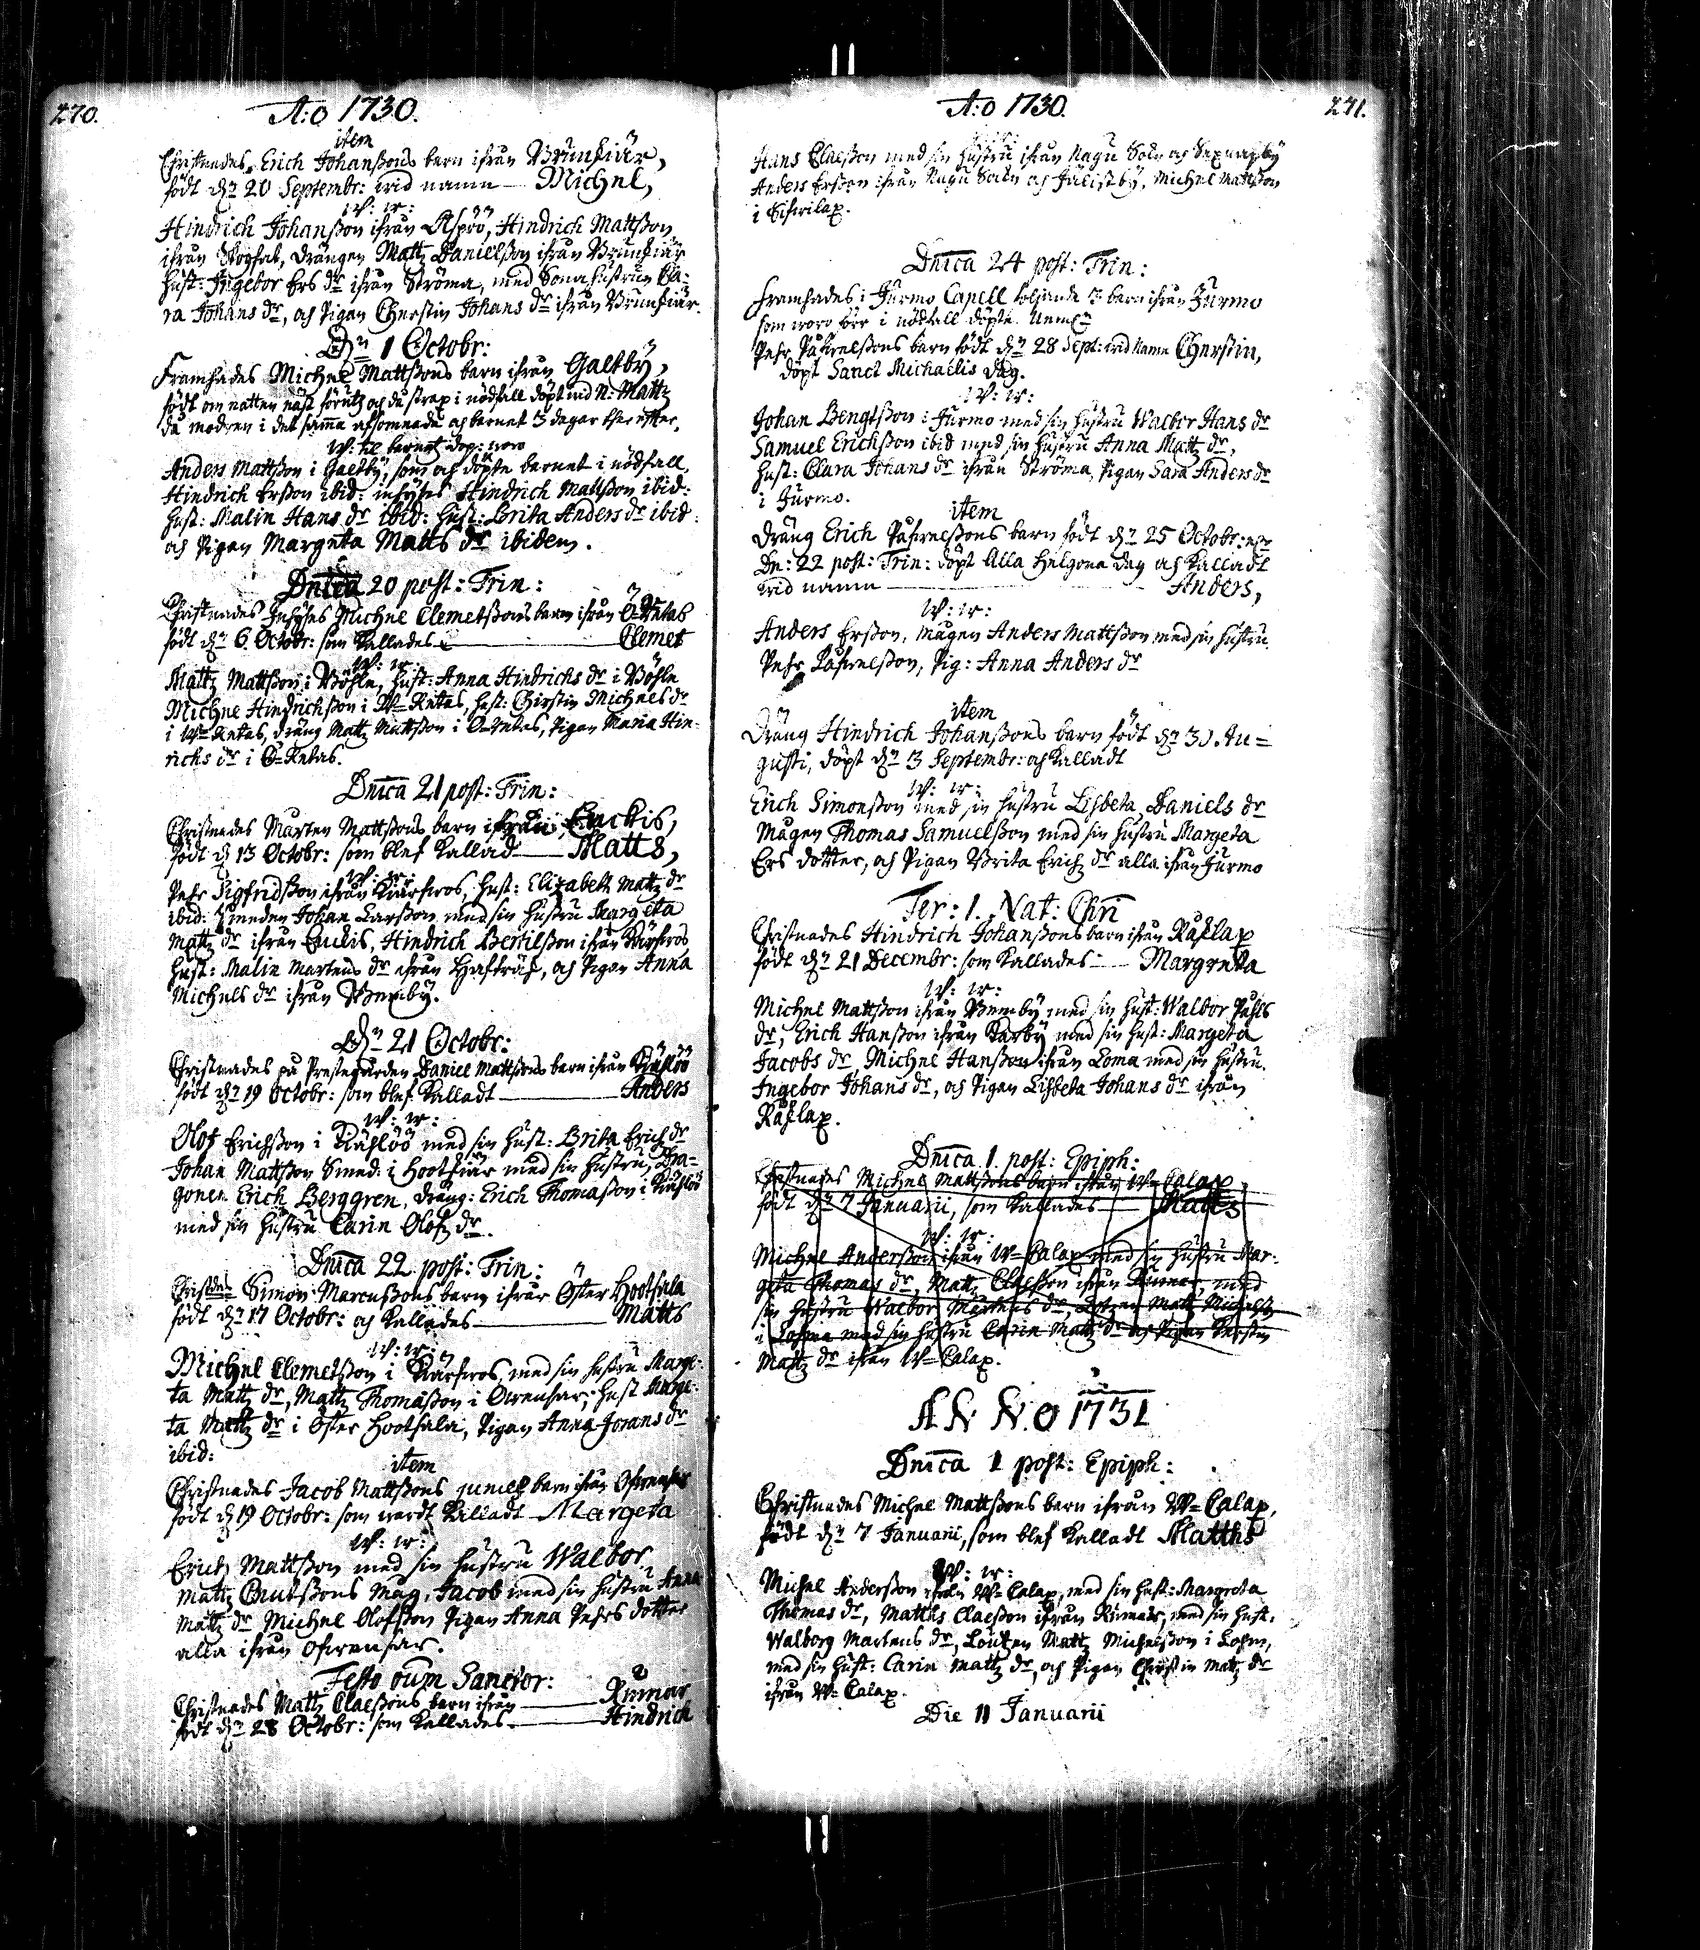 270.
A:o 1730.
item
Christnades Erich Johanßons barn ifrån Brunskiär,
födt dn 20 Septembr: wid namn Michel,
W: w:
Hindrich Johanßon ifrån Aspöö, Hindrich Mattßon
ifrån, drängen Mattz Danielßon ifrån Brunskiär
hust: Ingebor Ers dr ifrån Ströma, med Sonahustrun Cla=
ra Johans dr, och Pigan Cherstin Johans dr ifrån Brunskiär.
Dn 1 Octobr:
Framhades Michel Mattßons barn ifrån Galtby,
födt om natten näst förut och då strax i nödfall döpt wid N: Mattz
då modren i det samma afsomnade och barnet 3 dagar ther efter.
W: til barnets dop: woro
Anders Mattßon i Galtby, som och döpte barnet i nödfall,
Hindrich Erßon ibid: inhyses Hindrich Mattßon ibid:
hust: Malin Hans dr ibid: hust: Brita Anders dr ibid:
och Pigan Margeta Matts dr ibidem.
Dnica 20 post: Trin:
Christnades Inhyses Michel Clemetßons barn ifrån Ö=Retas
födt dn 6 Octobr: som kallades Clemet
W: w:
Mattz Mattßon i Böhle, hust: Anna Hindrichs dr i Böhle
Michel Hindrichßon i W=Retas, hust: Chirstin Michels dr
i W=Retas, dräng Mattz Mattßon i Ö=Retas, Pigan Maria Hin=
richs dr i Ö=Retas.
Dnica 21 post: Trin:
Christnades Mårten Mattßons barn ifrån Enckis,
födt d 13 Octobr: som blef kallad Matts,
W: w:
Pehr Sigfridßon ifrån Kiärfwos, hust: Elizabeth Mattz dr
ibid: Smeden Johan Larßon med sin hustru Margeta
Mattz dr ifrån Enckis, Hindrich Bertilßon ifrån Kiärfwos
hust: Malin Mårtens dr ifrån Hafträsk, och Pigan Anna
Michels dr ifrån Bemby.
Dn 21 Octobr:
Christnades på Prestegården Daniel Mattßons barn ifrån
födt dn 19 Octobr: som blef kalladt Anders
W: w:
Olof Erichßon i med sin hust: Brita Erichz dr
Johan Mattßon Smed: i Hootskiär med sin hustru, Dra=
gonen Erich Berggren, dräng: Erich Thomaßon i
med sin hustru Carin Olofz dr.
Dnica 22 post: Trin:
Christdes Simon Marcußons barn ifrån Öster Hootsala
födt dn 17 Octobr: och kallades Matts
W: w:
Michel Clemetßon i Kiärfwos, med sin hustru Marge=
ta Mattz dr, Mattz Thomaßon i Ofwensar, hust Marge=
ta Mattz dr i Öster Hootsala, Pigan Anna Jorans dr
ibid:
item
Christnades Jacob Mattßons junies barn ifrån Ofwensar
födt d 19 Octobr: som wardt kalladt Margeta
W: w:
Erich Mattßon med sin hustru Walbor
Mattz Cnutßons måg, Jacob med sin hustru Anna
Mattz dr Michel Olofßon Pigan Anna Pehrs dotter
alla ifrån Ofwensar.
Festo oum Sanctor:
Christnades Mattz Claeßons barn ifrån Rumar
födt dn 28 Octobr: som kallades Hindrich
A:o 1730.
271.
Hans Claeßon med sin hustru ifrån Nagu Sokn och
Anders Erßon ifrån Nagu Sokn och, Michel Mattßon
i
Dnica 24 post: Trin:
Framhades i Jurmo Capell följande 3 barn ifrån Jurmo
som woro förr i nödfall döpte. Neml:
Pehr Påhwelßons barn födt dn 28 Sept: wid Namn Cherstin,
döpt Sanct Michaelis dag.
W: w:
Johan Bengtßon i Jurmo med sin hustru Walbor Hans dr
Samuel Erichßon ibid med sin hustru Anna Mattz dr,
hust: Clara Johans dr ifrån Ströma, Pigan Sara Anders dr
i Jurmo.
item
Dräng Erich Påhwelßons barn födt dn 25 Octobr:
Dn: 22 post: Trin: döpt Alla Helgona dag och kalladt
wid namn Anders,
W: w:
Anders Erßon, mågen Anders Mattßon med sin hustru
Pehr Påhwelßon, Pig: Anna Anders dr
item
Dräng Hindrich Johanßons barn födt dn 30. Au=
gusti, döpt dn 3 Septembr: och kalladt
W: w:
Erich Simonßon med sin hustru Lisbeta Daniels dr
Mågen Thomas Samuelßon med sin hustru Margeta
Ers dotter, och Pigan Brita Erichz dr alla ifrån Jurmo
Fer: 1. Nat: Chri
Christnades Hindrich Johanßons barn ifrån Råklax
födt dn 21 Decembr: som kallades Margreta
W: w:
Michel Mattßon ifrån Bemby med sin hust: Walbor Påhls
dr, Erich Hanßon ifrån Karby med sin hust: Margeta
Jacobs dr, Michel Hanßon ifrån Loma med sin hustru.
Ingebor Johans dr, och Pigan Lisbeta Johans dr ifrån
Råklax.
Dnica 1. post: Epiph:
Christnades Michel Mattßons barn ifrån W=Calax,
födt dn 7 Januarii, som kallades Matts
W: w:
Michel Anderßon ifrån W=Calax med sin hustru Mar=
geta Thomas dr, Mattz Claeßon ifrån Rumar, med
sin hustru Walbor Mårtens dr, Lotzen Mattz Michelß
i Lohma med sin hustru Carin Mattz dr och Pigan Kerstin
Mattz dr ifrån W=Calax.
ANNO 1731
Dnica 1 post: Epiph:
Christnades Michel Mattßons barn ifrån W=Calax,
födt dn 7 Januarii, som blef kalladt Matths
W: w:
Michel Anderßon ifrån W=Calax, med sin hust: Margreta
Thomas dr, Matths Claeßon ifrån Rumar, med sin hust:
Walborg Martens dr, Loutzen Mattz Michelßon i Lohm,
med sin hust: Carin Mattz dr, och Pigan Chirstin Matz dr
ifrån W=Calax.
Die 11 Januarii